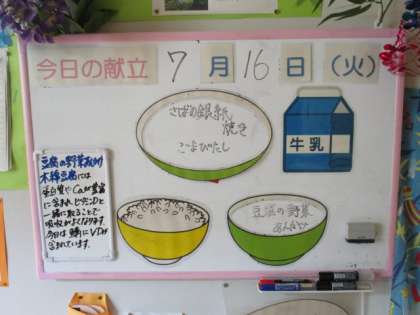 今日の献立 7月16日(火)
さばの銀紙
焼き
こまつびたし
牛乳
豆腐の野菜あんかけ
木綿豆腐には
蛋白質やCaが豊富
に含まれ、ビタミンDと
一緒に取ることで
吸収がよくなります。
今日は鯖にV.Dが
含まれています。
豆腐の野菜
あんかけ